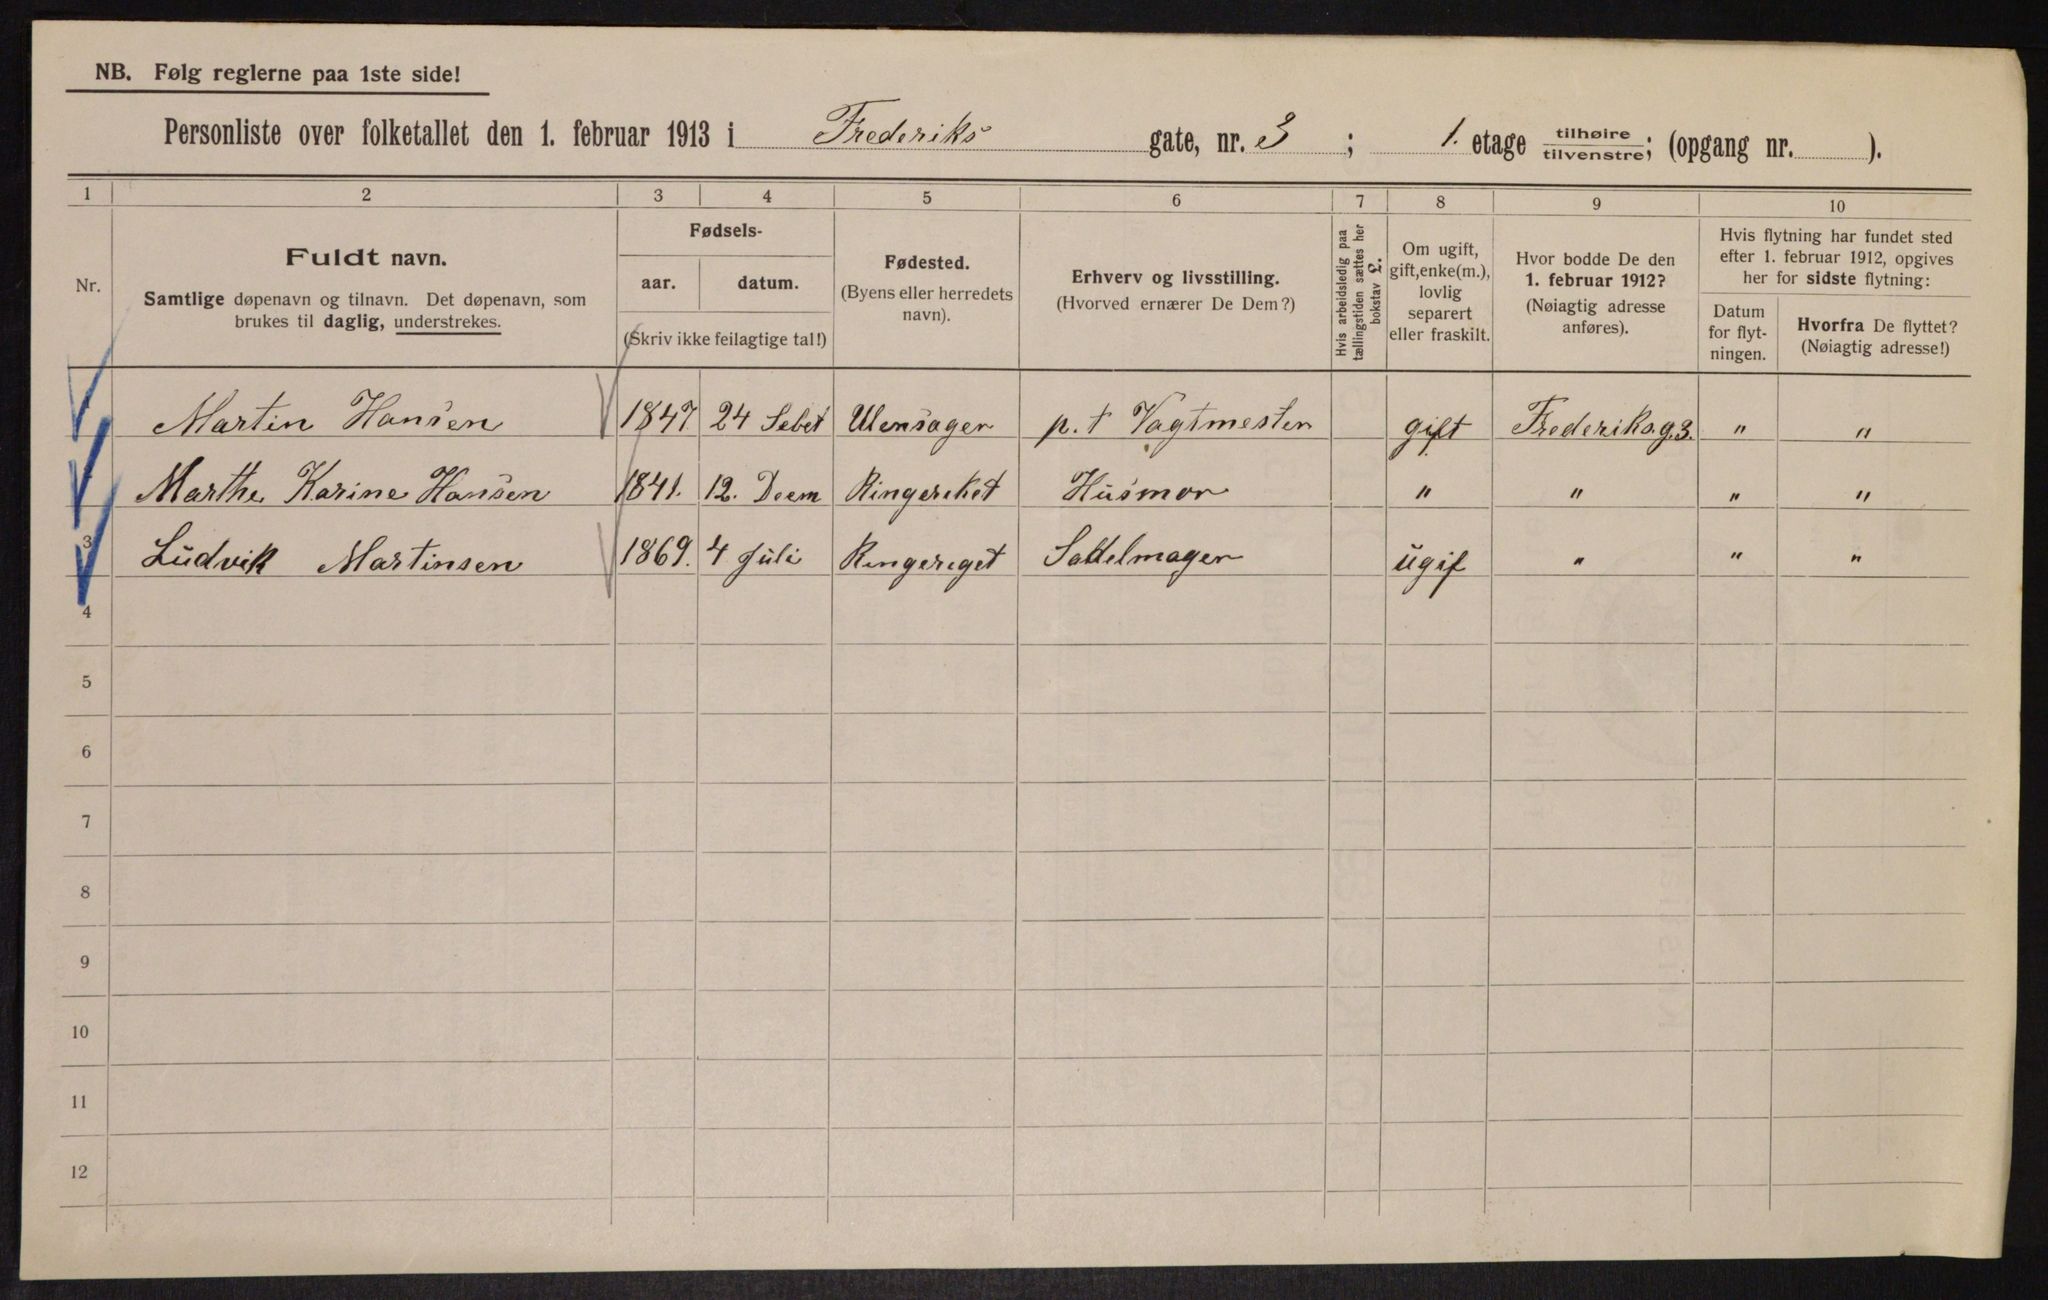 NB. Følg reglerne paa 1ste side!
Personliste over folketallet den 1. februar 1913 i Frederiks gate, nr. 3 ; 1. etage tilhøire/tilvenstre; (opgang nr. ).
1 2 3 4 5 6 7 8 9 10
Nr.
Fuldt navn.
Samtlige døpenavn og tilnavn. Det døpenavn, som
brukes til daglig, understrekes.
Fødsels-
aar. datum.
(Skriv ikke feilagtige tal!)
Fødested.
(Byens eller herredets
navn).
Erhverv og livsstilling.
(Hvorved ernærer De Dem?)
Hvis arbeidsledig paa
tællingstiden sættes her
bokstav L.
Om ugift,
gift, enke(m.),
lovlig
separert
eller fraskilt.
Hvor bodde De den
1. februar 1912?
(Nøiagtig adresse
anføres).
Hvis flytning har fundet sted
efter 1. februar 1912, opgives
her for sidste flytning:
Datum
for flyt-
ningen.
Hvorfra De flyttet?
(Nøiagtig adresse!)
Martin Hansen 1847. 24 Sebt Ulensager p.t Vagtmester gift Frederiks.g.3. " "
Marthe Karine Hansen 1841. 12. Deem Ringeriket Husmor " " " "
3 Ludvik Martinsen 1869. 4 Juli Ringereget Sadelmager ugif " " "
4
5
6
7
8
9
10
11
12